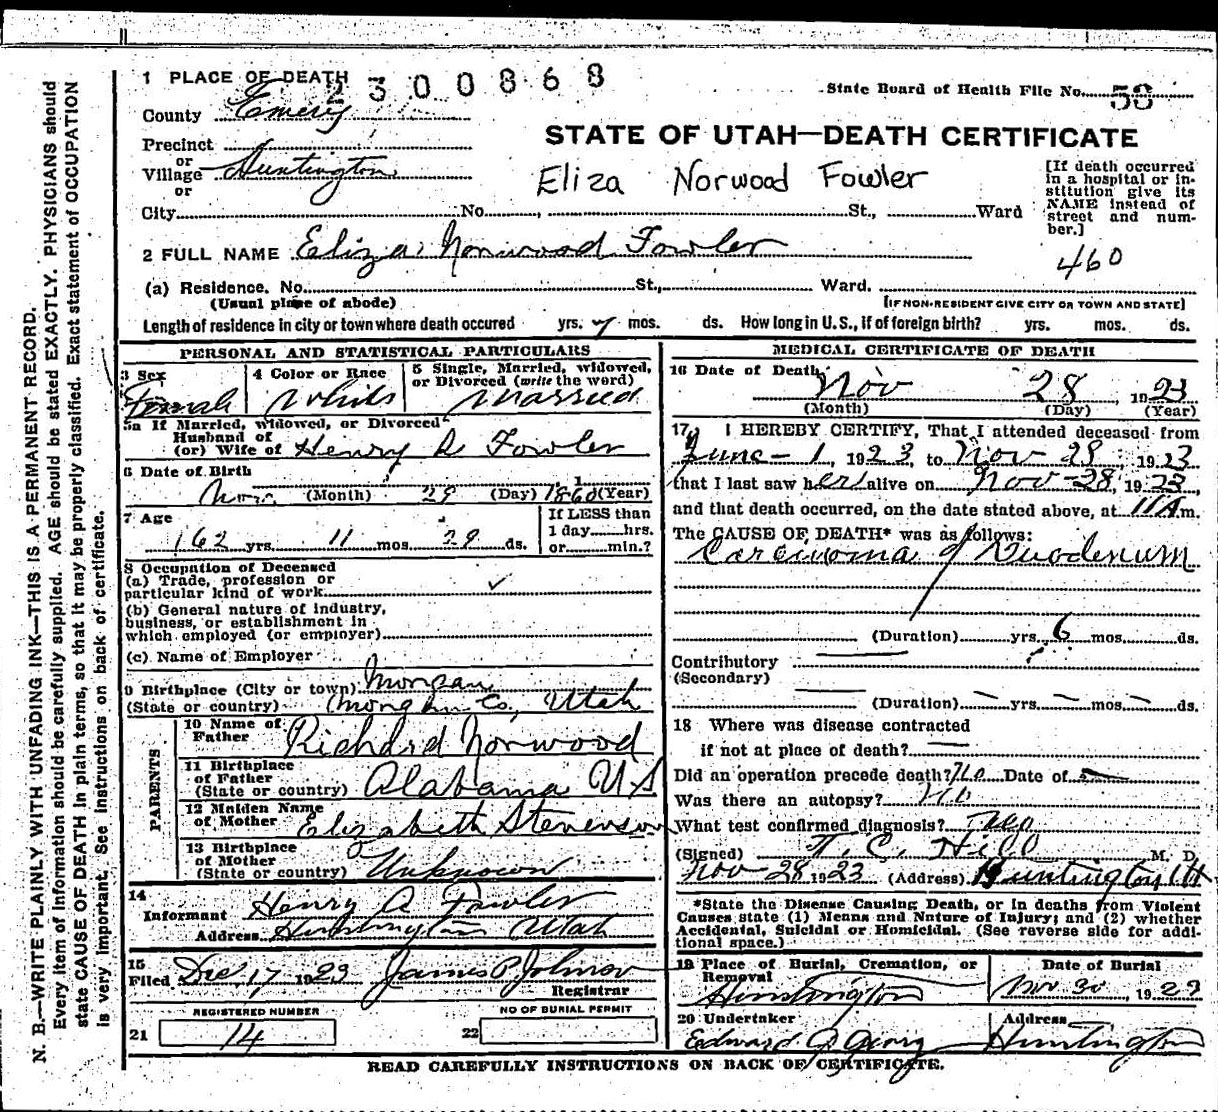 N. B.—WRITE PLAINLY WITH UNFADING INK—THIS IS A PERMANENT RECORD.
Every item of information should be carefully supplied. AGE should be stated EXACTLY. PHYSICIANS should
state CAUSE OF DEATH in plain terms, so that it may be properly classified. Exact statement of OCCUPATION
is very important. See instructions on back of certificate.
1 PLACE OF DEATH 2300868
State Board of Health File No. 58
County Emery
STATE OF UTAH—DEATH CERTIFICATE
Precinct
or
Village Huntington
or
Eliza Norwood Fowler
[If death occurred
in a hospital or in-
stitution give its
NAME instead of
street and num-
ber.]
City No. , St., Ward
2 FULL NAME Eliza Norwood Fowler
460
(a) Residence. No. St., Ward.
(Usual place of abode) [IF NON-RESIDENT GIVE CITY OR TOWN AND STATE]
Length of residence in city or town where death occured yrs. 7 mos. ds. How long in U. S., if of foreign birth? yrs. mos. ds.
PERSONAL AND STATISTICAL PARTICULARS
3 Sex
Female
4 Color or Race
White
5 Single, Married, widowed,
or Divorced (write the word)
Married
5a If Married, widowed, or Divorced
Husband of
(or) Wife of Henry A Fowler
6 Date of Birth
(Month) 29 (Day) 1860 (Year)
7 Age
62 yrs. 11 mos 29 ds.
If LESS than
1 day hrs.
or min.?
8 Occupation of Deceased
(a) Trade, profession or
particular kind of work
(b) General nature of industry,
business, or establishment in
which employed (or employer)
(c) Name of Employer
9 Birthplace (City or town) Morgan
(State or country) Morgan Co., Utah
PARENTS
10 Name of
Father Richard Norwood
11 Birthplace
of Father
(State or country) Alabama U S
12 Maiden Name
of Mother Elizabeth Stevenson
13 Birthplace
of Mother
(State or country) Unknown
14
Informant Henry A Fowler
Address Huntington Utah
15
Filed Dec 17 1923 James P Johnson
Registrar
REGISTERED NUMBER
21 14
NO OF BURIAL PERMIT
22
MEDICAL CERTIFICATE OF DEATH
16 Date of Death
Nov 28, 1923
(Month) (Day) (Year)
17 I HEREBY CERTIFY, That I attended deceased from
June - 1, 1923, to Nov 28, 1923
that I last saw her alive on Nov - 28, 1923,
and that death occurred, on the date stated above, at 11 A m.
The CAUSE OF DEATH* was as follows:
Carcinoma of Duodenum
(Duration) yrs. 6 mos. ds.
Contributory
(Secondary)
(Duration) yrs. mos. ds.
18 Where was disease contracted
if not at place of death?
Did an operation precede death? No Date of
Was there an autopsy? No
What test confirmed diagnosis?
(Signed) T. C. Hill M. D.
Nov - 28 1923 (Address) Huntington Ut
*State the Disease Causing Death, or in deaths from Violent
Causes state (1) Means and Nature of Injury; and (2) whether
Accidental, Suicidal or Homicidal. (See reverse side for addi-
tional space.)
19 Place of Burial, Cremation, or
Removal
Huntington
Date of Burial
Nov 30, 1923
20 Undertaker
Edward G Geary
Address
Huntington
READ CAREFULLY INSTRUCTIONS ON BACK OF CERTIFICATE.